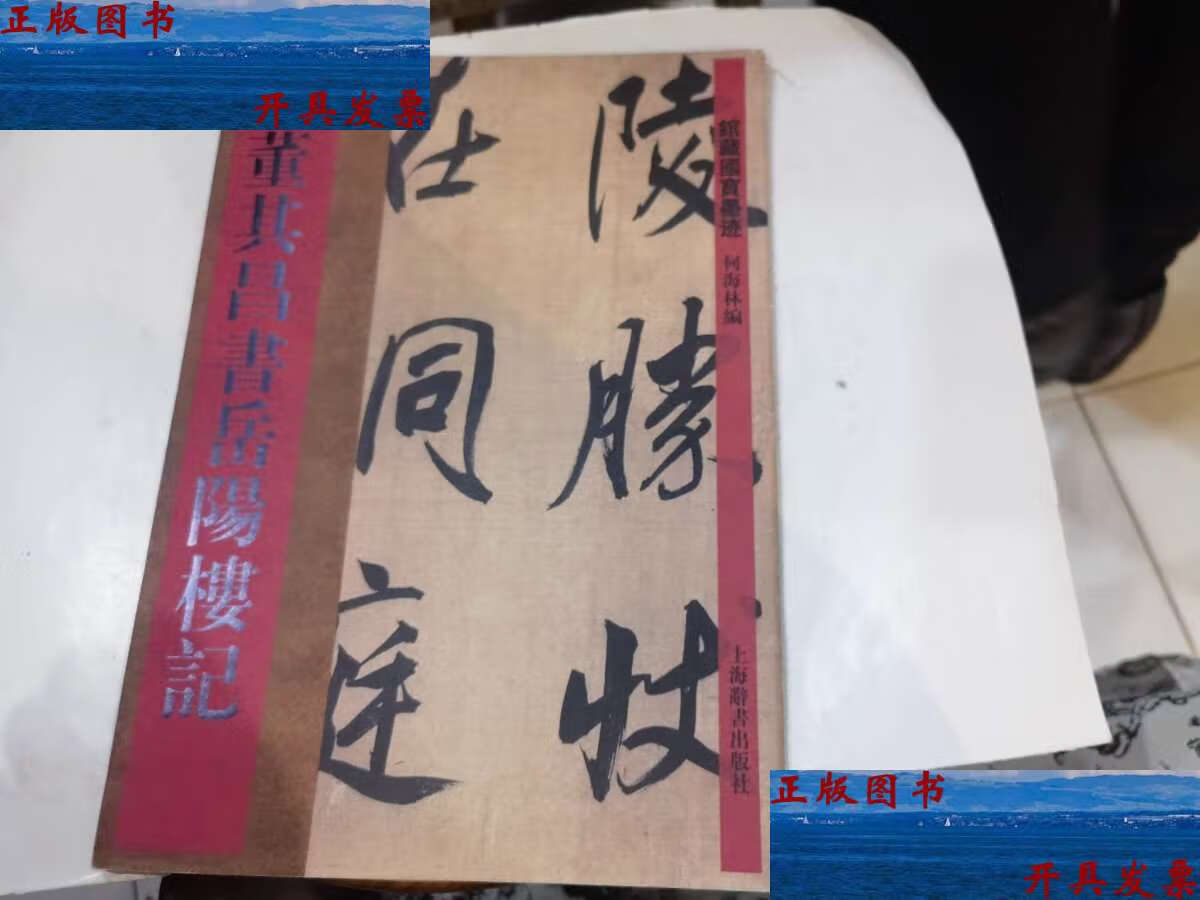 正版图书
开具发票
董其昌書岳陽樓記
館藏國寶墨迹 何海林編
上海辭書出版社
陵勝狀
在同庭
正版图书
开具发票